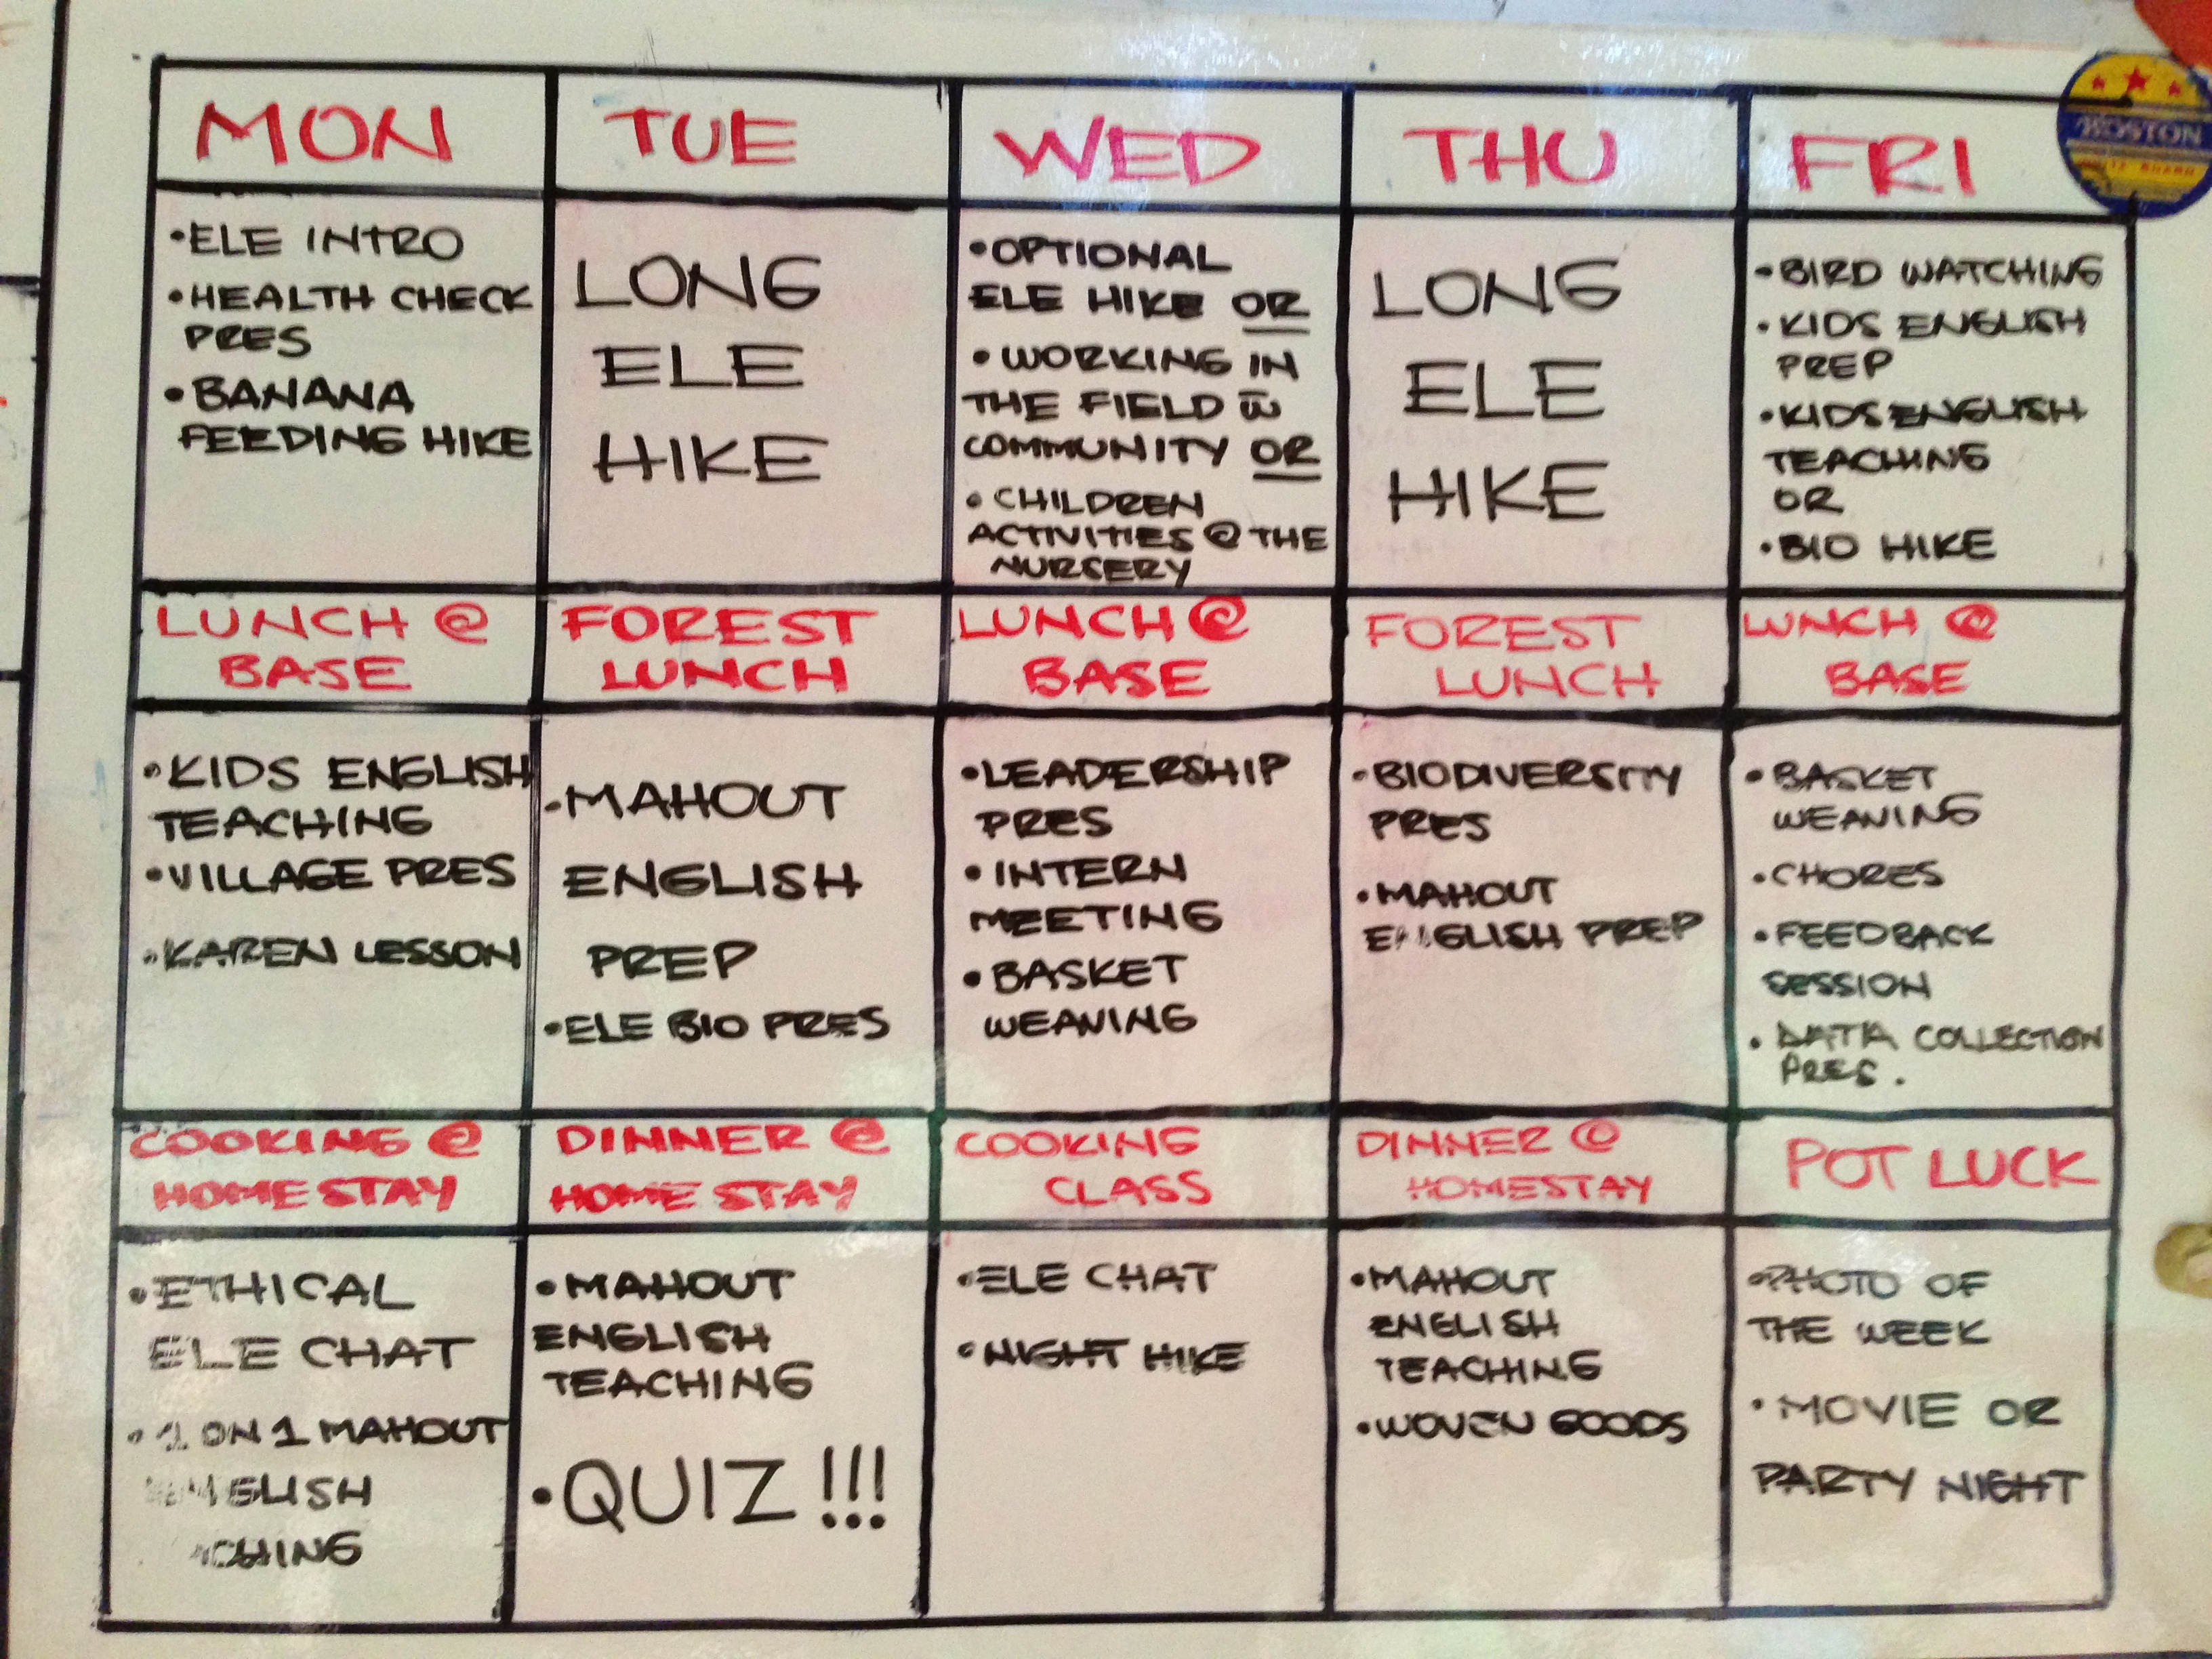 MON
TUE
WED
THU
FRI
BOSTON
•ELE INTRO
•HEALTH CHECK
PRES
•BANANA
FEEDING HIKE
LONG
ELE
HIKE
•OPTIONAL
ELE HIKE OR
•WORKING IN
THE FIELD W̄
COMMUNITY OR
•CHILDREN
ACTIVITIES @ THE
NURSERY
LONG
ELE
HIKE
•BIRD WATCHING
•KIDS ENGLISH
PREP
•KIDS ENGLISH
TEACHING
OR
•BIO HIKE
LUNCH @
BASE
FOREST
LUNCH
LUNCH @
BASE
FOREST
LUNCH
LUNCH @
BASE
•KIDS ENGLISH
TEACHING
•VILLAGE PRES
•KAREN LESSON
•MAHOUT
ENGLISH
PREP
•ELE BIO PRES
•LEADERSHIP
PRES
•INTERN
MEETING
•BASKET
WEAVING
•BIODIVERSITY
PRES
•MAHOUT
ENGLISH PREP
•BASKET
WEAVING
•CHORES
•FEEDBACK
SESSION
•DATA COLLECTION
PRES.
COOKING @
HOMESTAY
DINNER @
HOME STAY
COOKING
CLASS
DINNER @
HOMESTAY
POT LUCK
•ETHICAL
ELE CHAT
•1 ON 1 MAHOUT
ENGLISH
CHING
•MAHOUT
ENGLISH
TEACHING
•QUIZ!!!
•ELE CHAT
•NIGHT HIKE
•MAHOUT
ENGLISH
TEACHING
•WOVEN GOODS
•PHOTO OF
THE WEEK
•MOVIE OR
PARTY NIGHT